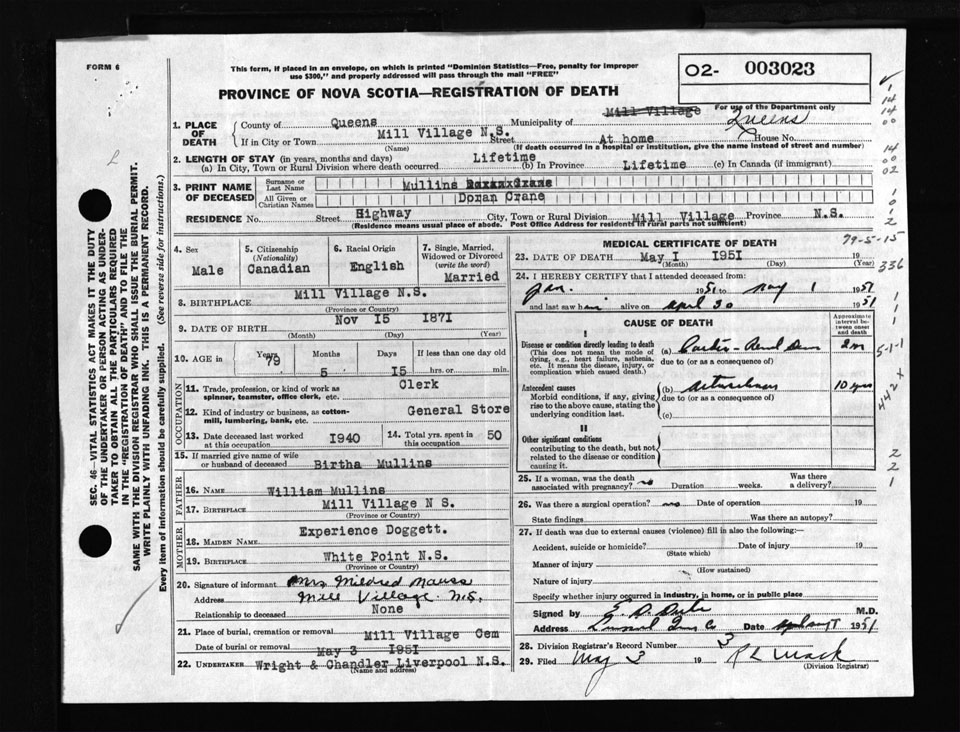 FORM 6
This form, if placed in an envelope, on which is printed "Dominion Statistics—Free, penalty for improper
use $300," and properly addressed will pass through the mail "FREE"
O2- 003023
PROVINCE OF NOVA SCOTIA—REGISTRATION OF DEATH
For use of the Department only
1. PLACE OF DEATH
County of Queens Municipality of Mill Village Queens
If in City or Town Mill Village N.S. Street At home House No.
(Name) (If death occurred in a hospital or institution, give the name instead of street and number)
2. LENGTH OF STAY (in years, months and days)
(a) In City, Town or Rural Division where death occurred Lifetime (b) In Province Lifetime (c) In Canada (if immigrant)
3. PRINT NAME OF DECEASED
Surname or Last Name Mullins
All Given or Christian Names Doran Crane
RESIDENCE No. Street Highway City, Town or Rural Division Mill Village Province N.S.
(Residence means usual place of abode. Post Office Address for residents in rural parts not sufficient)
4. Sex Male
5. Citizenship (Nationality) Canadian
6. Racial Origin English
7. Single, Married, Widowed or Divorced (write the word) Married
8. BIRTHPLACE Mill Village N.S.
(Province or Country)
9. DATE OF BIRTH Nov I5 I87I
(Month) (Day) (Year)
10. AGE in Years 79 Months 5 Days I5 If less than one day old hrs. or min.
OCCUPATION
11. Trade, profession, or kind of work as spinner, teamster, office clerk, etc. Clerk
12. Kind of industry or business, as cotton-mill, lumbering, bank, etc. General Store
13. Date deceased last worked at this occupation I940
14. Total yrs. spent in this occupation 50
15. If married give name of wife or husband of deceased Birtha Mullins
FATHER
16. NAME William Mullins
17. BIRTHPLACE Mill Village N S.
(Province or Country)
MOTHER
18. MAIDEN NAME Experience Doggett.
19. BIRTHPLACE White Point N.S.
(Province or Country)
20. Signature of informant Mrs Mildred
Address Mill Village. N.S.
Relationship to deceased None
21. Place of burial, cremation or removal Mill Village Cem
Date of burial or removal May 3 I95I
22. UNDERTAKER Wright & Chandler Liverpool N.S.
(Name and address)
MEDICAL CERTIFICATE OF DEATH
23. DATE OF DEATH May I I95I 19
(Month) (Day) (Year)
24. I HEREBY CERTIFY that I attended deceased from:
Jan. 1951 to May 1 1951
and last saw him alive on April 30 1951
CAUSE OF DEATH
Approximate interval between onset and death
I
Disease or condition directly leading to death (a)
(This does not mean the mode of dying, e.g., heart failure, asthenia, etc. It means the disease, injury, or complication which caused death.)
due to (or as a consequence of)
Antecedent causes (b) 10 yrs
Morbid conditions, if any, giving rise to the above cause, stating the underlying condition last.
due to (or as a consequence of)
(c)
II
Other significant conditions
contributing to the death, but not related to the disease or condition causing it.
25. If a woman, was the death associated with pregnancy? no Duration weeks. Was there a delivery?
26. Was there a surgical operation? no Date of operation 19
State findings Was there an autopsy?
27. If death was due to external causes (violence) fill in also the following:—
Accident, suicide or homicide? Date of injury 19
(State which)
Manner of injury
(How sustained)
Nature of injury
Specify whether injury occurred in industry, in home, or in public place
Signed by M.D.
Address Date 1951
28. Division Registrar's Record Number 3
29. Filed May 3 19 R L Mack
(Division Registrar)
SEC. 46—VITAL STATISTICS ACT MAKES IT THE DUTY
OF THE UNDERTAKER OR PERSON ACTING AS UNDER-
TAKER TO OBTAIN ALL THE PARTICULARS REQUIRED
IN THE "REGISTRATION OF DEATH" AND TO FILE THE
SAME WITH THE DIVISION REGISTRAR WHO SHALL ISSUE THE BURIAL PERMIT.
WRITE PLAINLY WITH UNFADING INK. THIS IS A PERMANENT RECORD.
Every item of information should be carefully supplied. (See reverse side for instructions.)
79-5-15
336
5-1-1
442 x